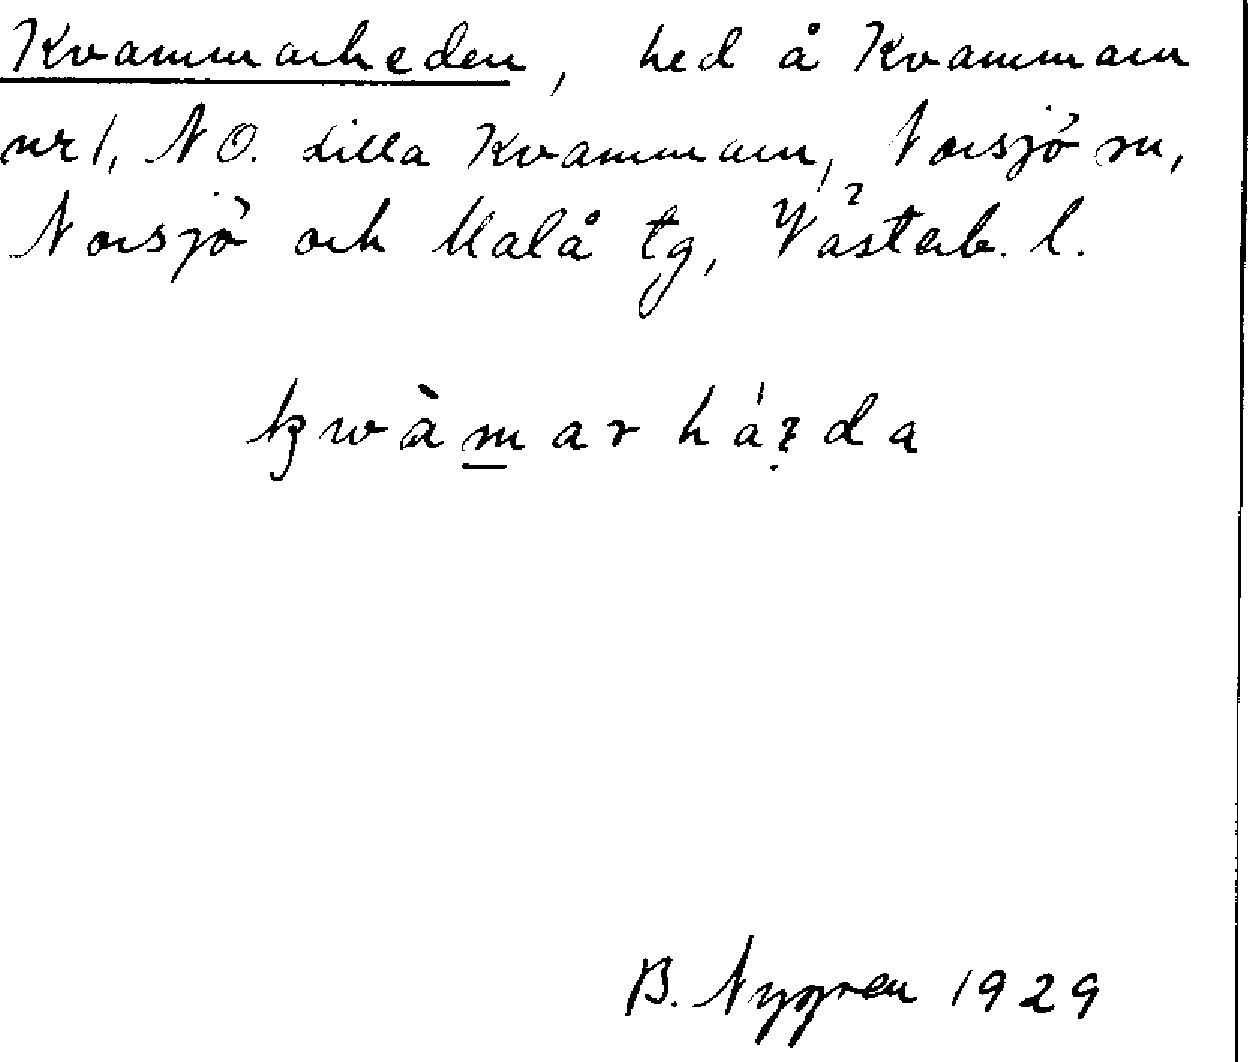 Kvammarheden, hed å Kvammarn
nr 1, NO. Lilla Kvammarn, Norsjö sn,
Norsjö och Malå tg, Västerb. l.
B. Nygren 1929